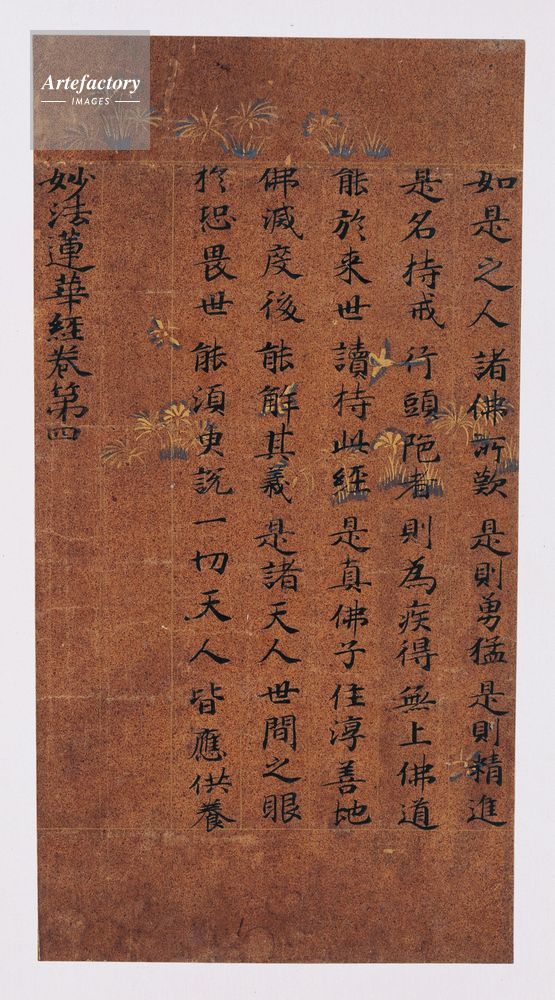 如是之人諸佛所歎是則勇猛是則精進
是名持戒行頭陁者則為疾得無上佛道
能於来世讀持此經是真佛子住淳善地
佛滅度後能解其義是諸天人世間之眼
於恐畏世能須臾説一切天人皆應供養
妙法蓮華經卷第四
Artefactory
IMAGES